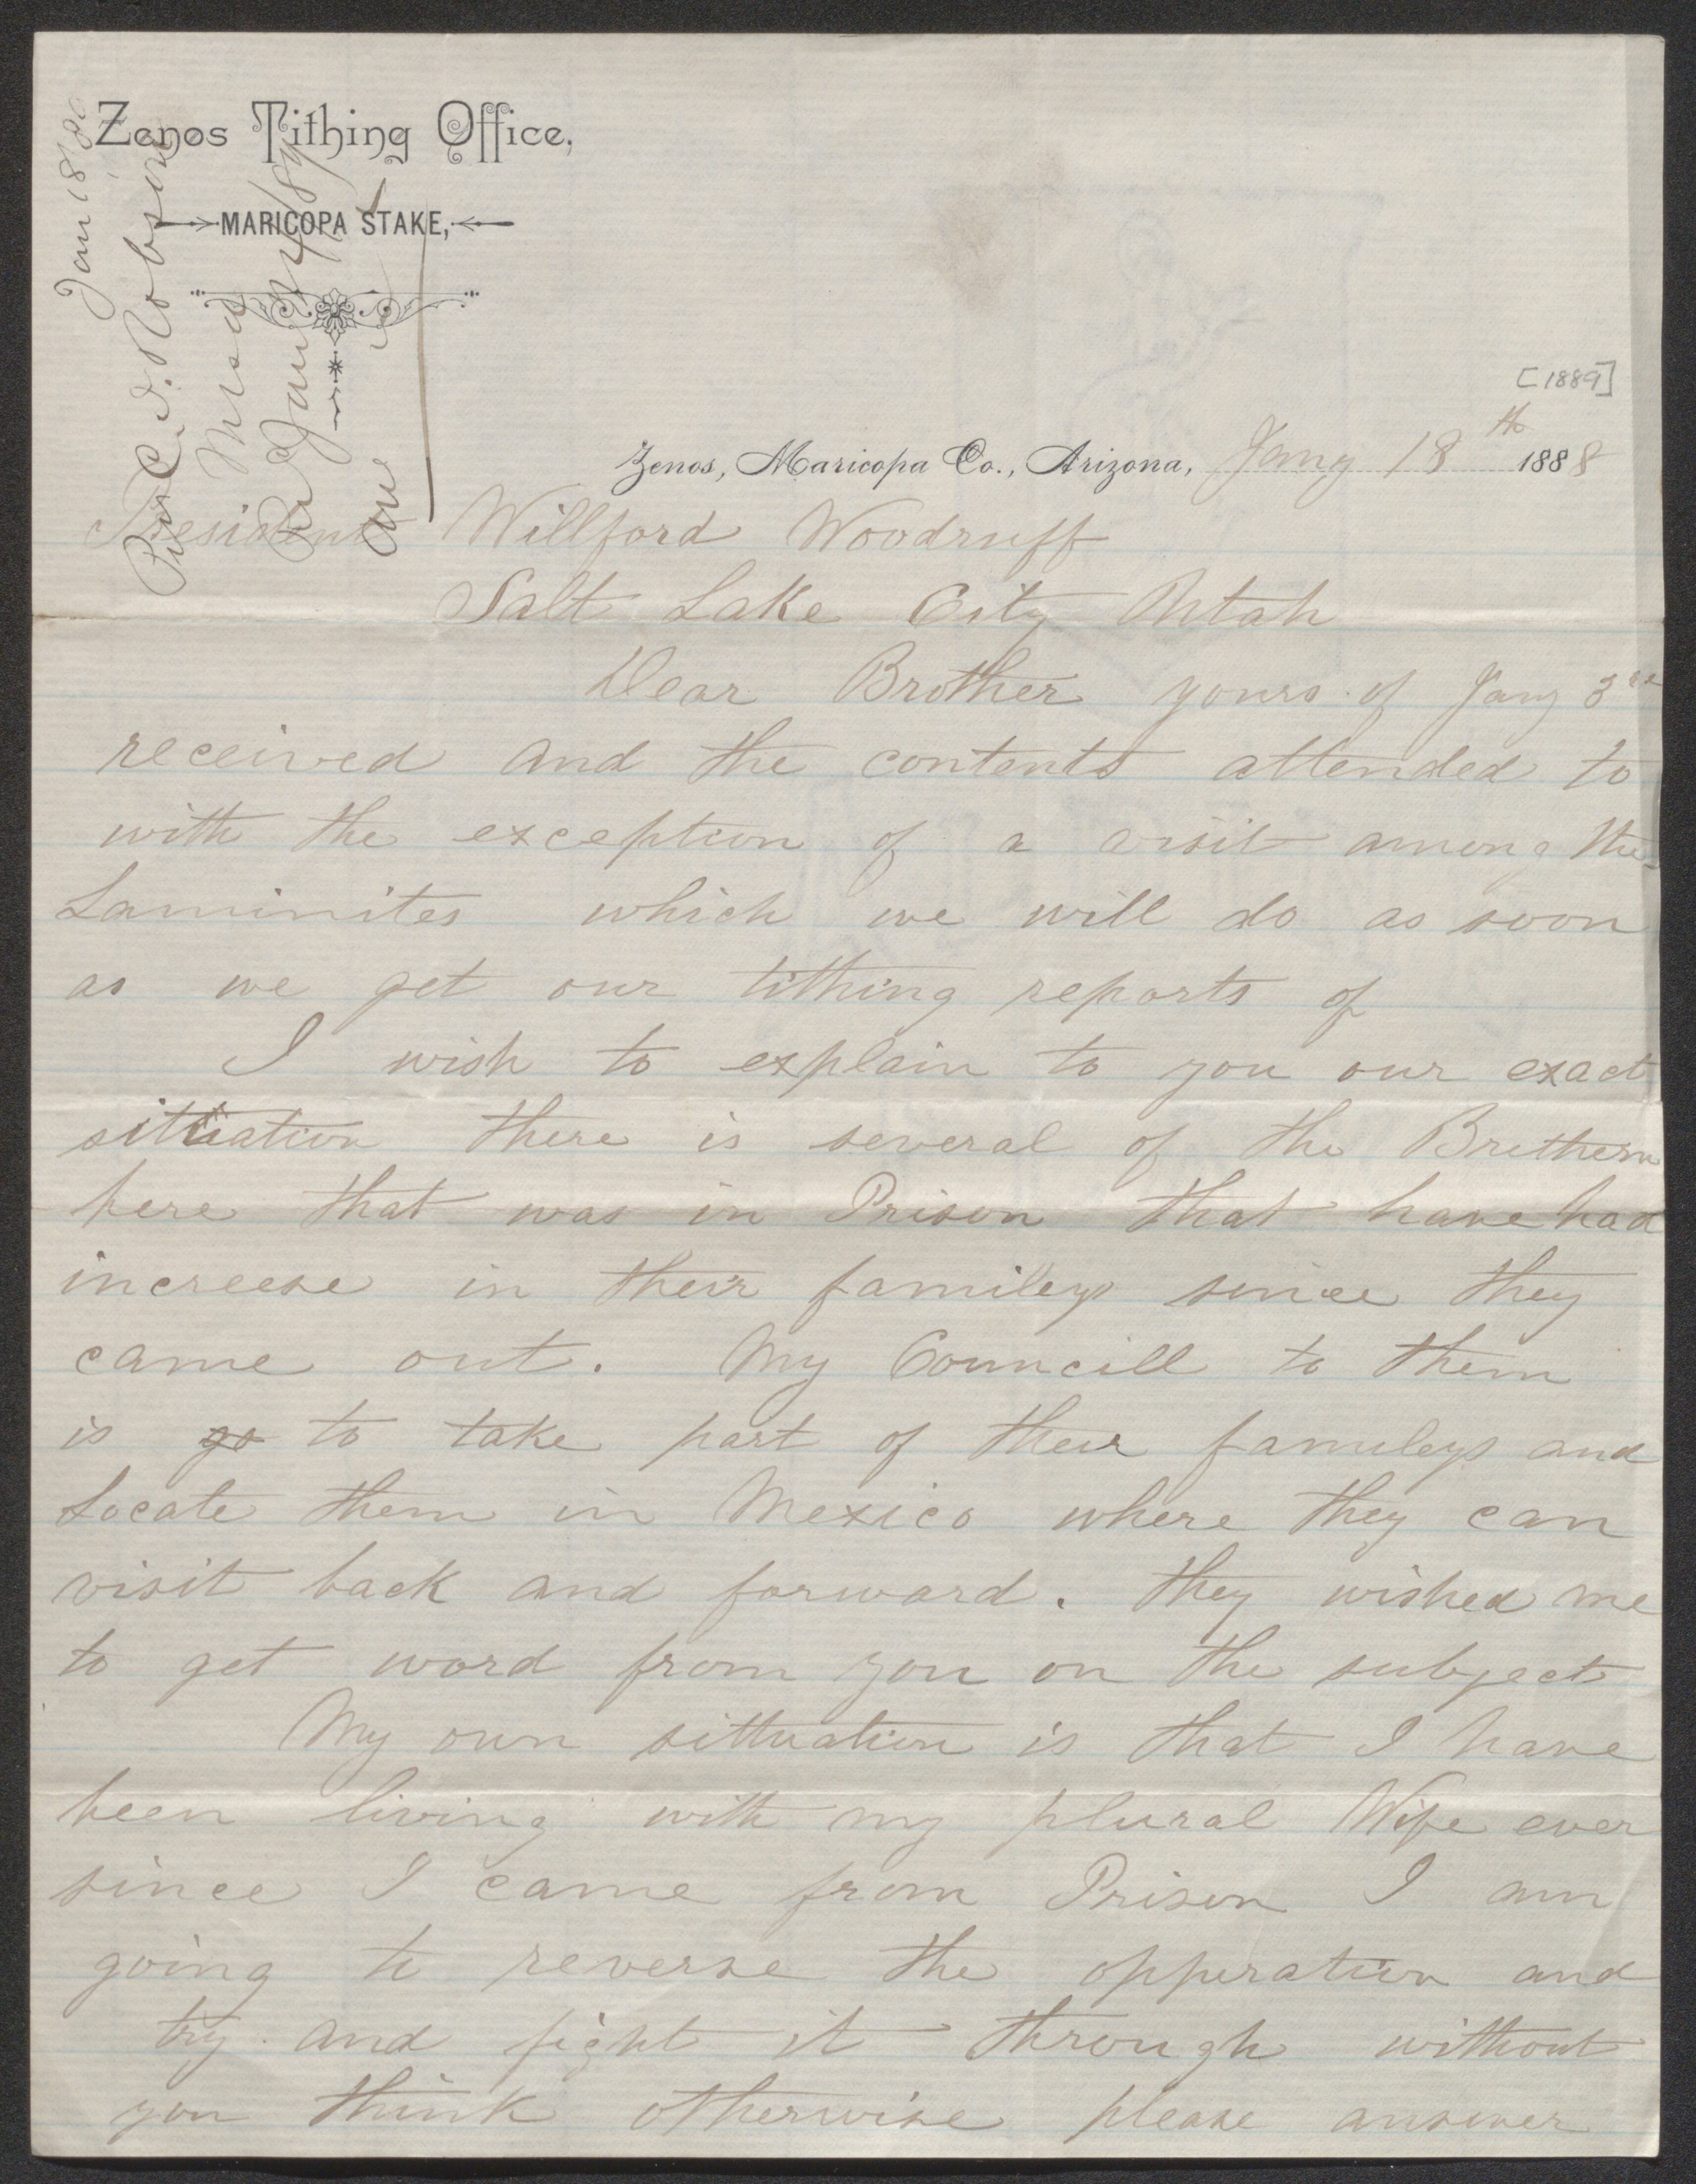 Zenos Tithing Office,
MARICOPA STAKE,
[1889]
Zenos, Maricopa Co., Arizona, Jany 18th 1888
President Willford Woodruff
Salt Lake City Utah
Dear Brother yours of Jany 3rd
received and the contents attended to
with the exception of a visit among the
Laminites which we will do as soon
as we get our tithing reports of
I wish to explain to you our exact
sittuation there is several of the Brethern
here that was in Prison that have had
increese in their famileys since they
came out. My Councill to them
is go to take part of their famileys and
Locate them in Mexico where they can
visit back and forward. they wished me
to get word from you on the subject
My own sittuation is that I have
been living with my plural Wife ever
since I came from Prison I am
going to reverse the opperation and
try and fight it through without
you think otherwise please answer
Jan 18
C. I. Robson
Mesa
Jany 24/89